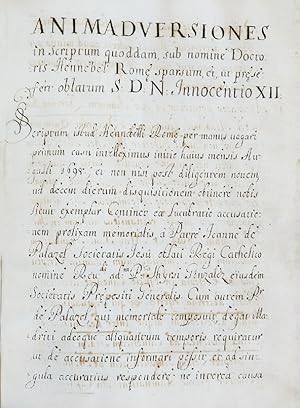 ANIMADVERSIONES
in Scriptum quoddam sub nomine Docto
ris Hennebel Romę sparsum, et, ut pręse
fert oblatum S. D. N. Innocentio XII.
Scriptum istud Hennebelli Romę per manus vagari
primum casu intelleximus initio huius mensis Au
gusti 1698; et non nisi post diligentem novem
aut decem dierum disquisitionem obtinere nobis
licuit exemplar. Continet ea
nem prolixam memorialis a Patre Jeanne de
Palazol Societatis Jesu oblati Regi Catholico
nomine Rev.di ad. P. Thyrsi Gonzalez eiusdem
Societatis Prępositi Generalis. Cum autem P.
de Palazol, qui memoriale composuit degat Ma
driti adeoque aliquantum temporis requiratur
ut de accusatione informari possit, et ad sin
gula accuratius respondere; ne interea causa